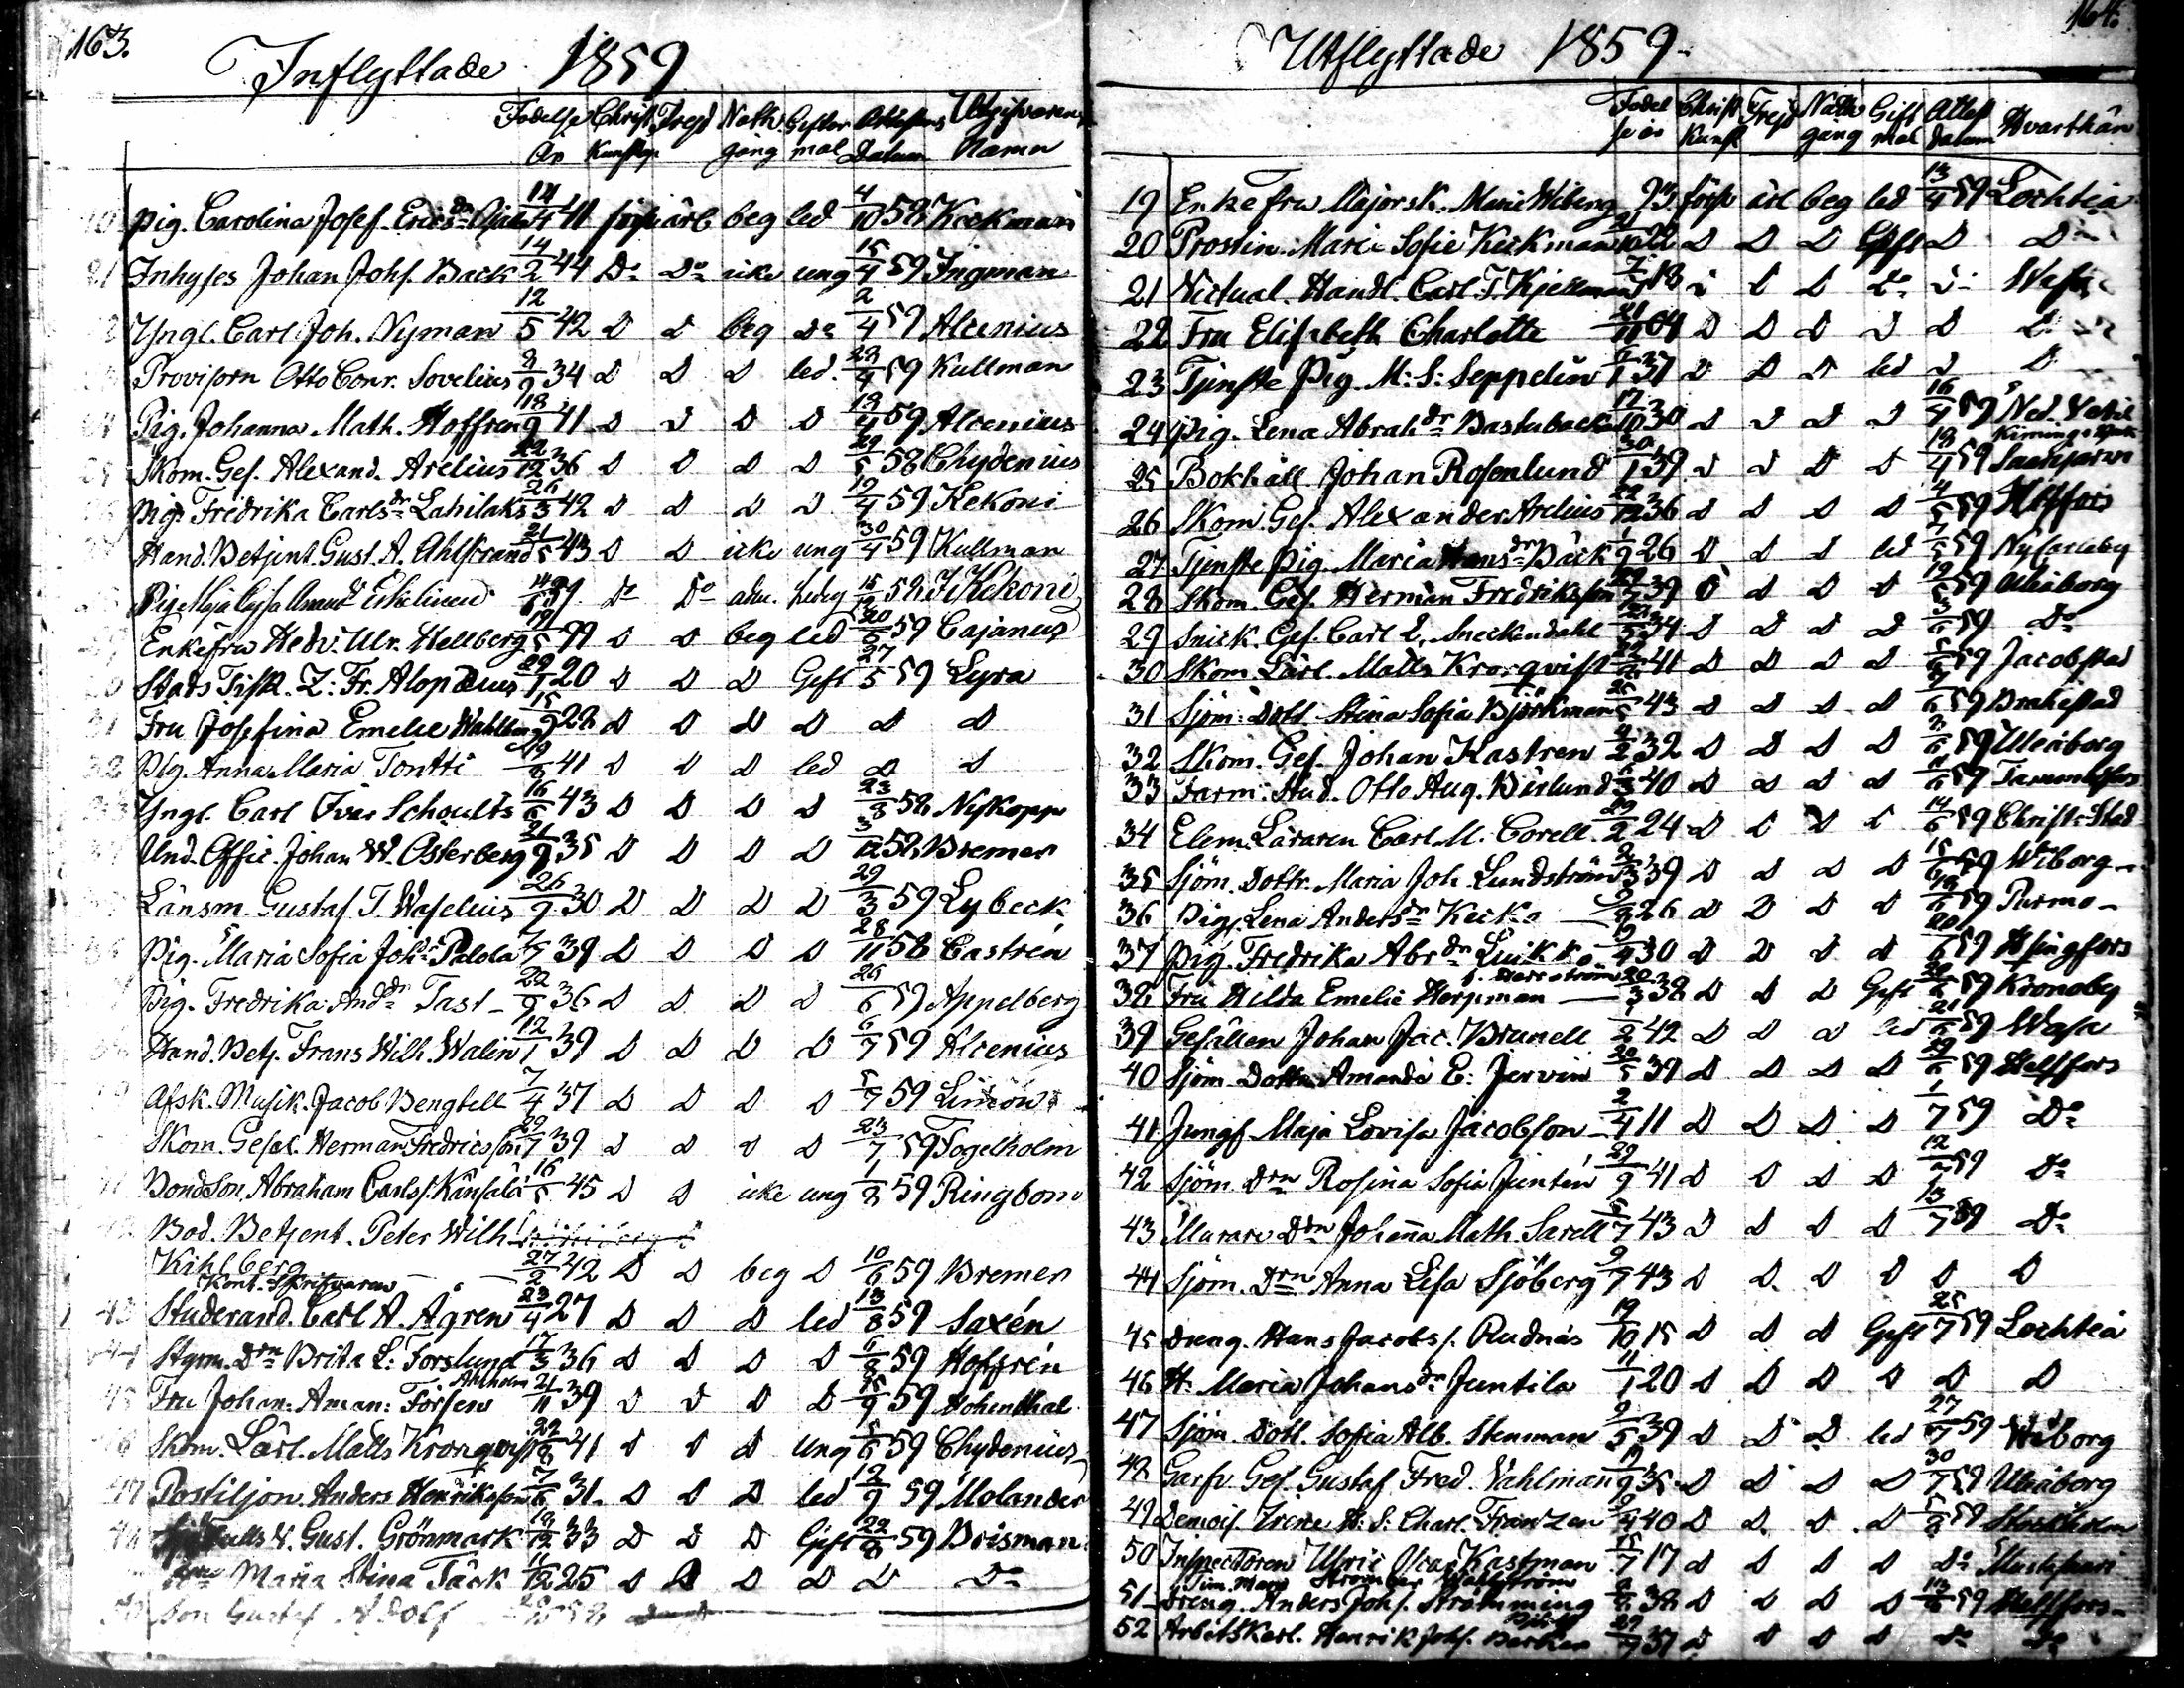 163.
Inflyttade 1859
Födelse År Christ. Kunskp Frejd Nattv. gång Giftermål Attestens Datum Utgifvarens Namn
Pig. Carolina Josef. Ericsdr 11/4 41 förs. ärb beg led 4/10 58 Keckman
21 Inhyses Johan Johs. Back 14/2 44 Do Do icke ung 15/4 59 Ingman
Yngl. Carl Joh. Nyman 12/5 42 D D beg Do 2/4 59 Alcenius
Provisorn Otto Conr. Sovelius 2/9 34 D D D led. 23/4 59 Kullman
Pig. Johanna Math. Hoffren 18/9 41 D D D D 13/4 59 Alcenius
Skom. Ges. Alexand. Arelius 22/12 36 D D D D 29/5 58 Chydenius
Pig. Fredrika Carlsdr Lahilaks 26/3 42 D D D D 19/4 59 Kekoni
Hand. Betjent Gust. A. Ahlstrand 21/5 43 D D icke ung 30/4 59 Kullman
Pig. Maja Cajsa Ekelund 59 Do Do adm. ledig 58 Kekoni
Enkefru Hedv. Ulr. Hellberg 17/5 99 D D beg led 20/5 59 Cajanus
Stads Fisk. Z: Fr. Alopæus 29/1 20 D D D Gift 27/5 59 Lyra
31 Fru Josefina Emelie Wahlberg 15/9 22 D D D D D D
32 Pig. Anna Maria Tontti 19/8 41 D D D led D D
Yngl. Carl Ivar Schoults 16/6 43 D D D D 23/8 58 Nykopp
Und. Offic. Johan W. Österberg 21/9 35 D D D D 3/12 58 Bremer
Länsm. Gustaf I. Waselius 26/9 30 D D D D 29/3 59 Lybeck
Pig. Maria Sofia Johsdr Palola 5/7 39 D D D D 28/11 58 Castrén
Pig. Fredrika Andsdr Tast 22/9 36 D D D D 26/6 59 Appelberg
Hand. Betj. Frans Wilh. Walin 12/1 39 D D D D 6/7 59 Alcenius
Afsk. Musik. Jacob Bengtell 7/4 37 D D D D 5/7 59 Limón
Skom. Gesäl. Herman Fredricsson 29/7 39 D D D D 23/7 59 Fogelholm
Bondson Abraham Carlss. Känsälä 16/5 45 D D icke ung 1/8 59 Ringbom
Bod. Betjent. Peter Wilh
Kihlberg 27/2 42 D D beg D 10/6 59 Bremer
Kont. Skrifvaren
43 Studerand. Carl A. Ågren 23/4 27 D D D led 13/8 59 Saxén
44 Styrm. Drn Brita L: Forslund 17/3 36 D D D D 6/8 59 Hoffrén
Ahlholm
45 Fru Johan: Aman: Forssen 21/11 39 D D D D 15/9 59 Hohenthal
Skom. Lärl. Matts Kronqvist 22/8 41 D D D ung 5/6 59 Chydenius
47 Postiljon Anders Henriksson 7/6 31. D D D led 12/9 59 Molander
Gust. Grönmark 19/12 33 D D D Gift 22/8 59 Brisman
Maria Stina Täck 11/12 25 D D D D D Do
Son Gustaf Adolf 58
164.
Utflyttade 1859
Födelse år Christ. Kunsk Frejd Nattv. gång Gift mål Attest Datum Hvarthän
19 Enkefru Majorsk. Maria Wiberg 93 förs. ärl beg led 13/4 59 Lochteå
20 Prostin Maria Sofia Keckman 21/10 22 D D D Gift D Do
21 Victual. Handl. Carl F. Kjellman 7/5 13 D D D Do D Wasa
22 Fru Elisabeth Charlotte 21/11 04 D D D D D D
23 Tjenste Pig. M: S: Seppelin 7/1 37 D D D led D D
24 Pig. Lena Abrahdr Bastubacka 17/10 30 D D D D 16/4 59 Ned. Vetil
25 Bokhåll. Johan Rosenlund 30/1 39 D D D D 13/4 59 Saarijärvi
26 Skom. Ges. Alexander Arelius 22/12 36 D D D D 4/5 59 H:fors
27 Tjenste Pig. Maria Hansdr Bäck 1/9 26 D D D led 7/5 59 Nykarleby
28 Skom. Ges. Herman Fredriksson 29/7 39 D D D D 12/5 59 Uleåborg
29 Snick. Ges. Carl L. Sneckendahl 34 D D D D 3/6 59 Do
30 Skom. Lärl. Matts Kronqvist 22/8 41 D D D D 5/6 59 Jacobstad
31 Sjöm: Dott. Stina Sofia Björkman 26/5 43 D D D D 59 Brahestad
32 Skom. Ges. Johan Kastren 4/2 32 D D D D 3/6 59 Uleåborg
33 Farm. Stud. Otto Aug. Bärlund 6/3 40 D D D D 11/6 59
34 Elem. Läraren Carl M. Corell. 29/2 24 D D D D 14/6 59 Christ:Stad
35 Sjöm. Dottr. Maria Joh. Lundström 2/3 39 D D D D 15/6 59 Wiborg
36 Pig. Lena Andersdr Kecko 26 D D D D 59 Purmo
37 Pig. Fredrika Abrdr Luikko 9/4 30 D D D D 59 H:singfors
38 Fru Hilda Emelie Herpman 20/3 38 D D D Gift 59 Kronoby
39 Gesällen Johan Jac. Brunell 1/2 42 D D D led 21/6 59 Wasa
40 Sjöm. Dottr. Amanda E: Jervin 20/5 39 D D D D 29/6 59 Helsfors
41 Jungf. Maja Lovisa Jacobson 2/4 11 D D D D 1/7 59 Do
42 Sjöm. Drn Rosina Sofia Junten 29/9 41 D D D D 12/7 59 Do
43 Murare Drn Johanna Math. Sarell 5/7 43 D D D D 13/7 59 Do
44 Sjöm. Drn Anna Lisa Sjöberg 9/7 43 D D D D D D
45 Dreng. Hans Jacobs s. Rudnäs 19/10 15 D D D Gift 25/7 59 Lochteå
46 H. Maria Johansdr Juntila 11/1 20 D D D D D D
47 Sjöm. Dott. Sofia Alb. Stenman 9/5 39 D D D led 27/7 59 Wiborg
48 Garfv. Ges. Gustaf Fred. Vahlman 19/9 35 D D D D 30/7 59 Uleåborg
49 Demois. Irene A. S. Charl. Franzen 9/4 40 D D D D 5/8 59 Stockholm
50 Inspectoren Ulric Oscar Kastman 15/7 17 D D D D Do Mustasaari
51 Dreng. Anders Johs. Strömming 38 D D D D 59 Helsfors
52 Arbets Karl. Henrik Johs. 29/7 37 D D D D Do Do